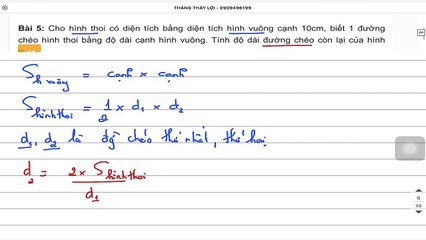 THẦNG THẦY LỢI - 0909496199
Bài 5: Cho hình thoi có diện tích bằng diện tích hình vuông cạnh 10cm, biết 1 đường
chéo hình thoi bằng độ dài cạnh hình vuông. Tính độ dài đường chéo còn lại của hình
S h vuông = cạnh x cạnh
S hình thoi = 1/2 x d1 x d2
d1, d2 là đg chéo thứ nhất, thứ hai.
d2 = 2 x S hình thoi / d1